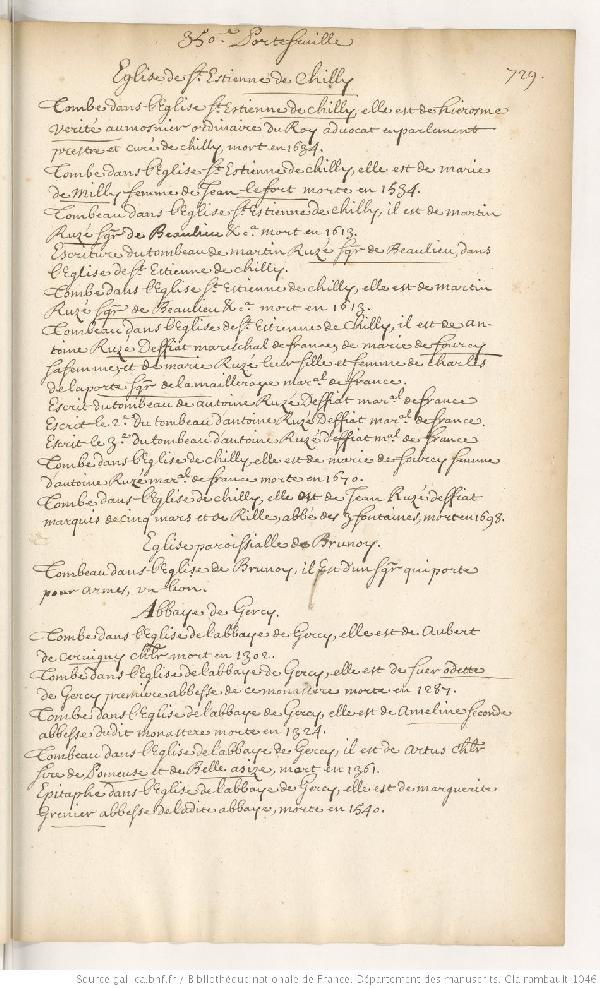 350.e Portefeuille
729.
Eglise de St. Estienne de Chilly
Tombe dans l'Eglise St. Estienne de chilly, elle est de hierosme
verité aumosnier ordinaire du Roy advocat en parlement
prestre et curé de chilly, mort en 1634.
Tombe dans l'Eglise St. Estienne de chilly, elle est de marie
de Milly femme de Jean lefort morte en 1534.
Tombeau dans l'Eglise St. Estienne de chilly, il est de martin
Ruzé sgr. de Beaulieu &c.a mort en 1613.
Escriture du tombeau de martin Ruzé sgr. de Beaulieu, dans
l'Eglise de St. Estienne de chilly.
Tombe dans l'Eglise St. Estienne de chilly, elle est de martin
Ruzé sgr. de Beaulieu &c.a mort en 1613.
Tombeau dans l'Eglise de St. Estienne de Chilly, il est de an-
toine Ruzé Deffiat mareschal de france, de marie de fourcy
sa femme, et de marie Ruzé leur fille et femme de charles
de la porte sgr. de la mailleraye mar.al de france.
Escrit du tombeau de antoine Ruzé Deffiat mar.al de france
Escrit le 2.e du tombeau d'antoine Ruzé Deffiat mar.al de france.
Escrit le 3.e du tombeau d'antoine Ruzé deffiat mar.al de france
Tombe dans l'Eglise de chilly, elle est de marie de fourcy femme
d'antoine Ruzé mar.al de france morte en 1670.
Tombe dans l'Eglise de chilly, elle est de Jean Ruzé deffiat
marquis de cinq mars et de Rille, abbé des 3 fontaines, mort en 1698.
Eglise paroissialle de Brunoy.
Tombeau dans l'Eglise de Brunoy, il est d'un sgr. qui porte
pour armes, un lion.
Abbaye de Gercy.
Tombe dans l'Eglise de l'abbaye de Gercy, elle est de Aubert
de cervigny chlr mort en 1302.
Tombe dans l'Eglise de l'abbaye de Gercy, elle est de suer odette
de Gercy premiere abbesse de ce monastere morte en 1287.
Tombe dans l'Eglise de l'abbaye de Gercy, elle est de ameline seconde
abbesse dudit monastere morte en 1324.
Tombeau dans l'Eglise de l'abbaye de Gercy, il est de artus chlr
sire de Pomeuse et de Belle asize, mort en 1361.
Epitaphe dans l'Eglise de l'abbaye de Gercy, elle est de marguerite
Grenier abbesse de ladite abbaye, morte en 1540.
Source gallica.bnf.fr / Bibliothèque nationale de France. Département des manuscrits. Clairambault 1046